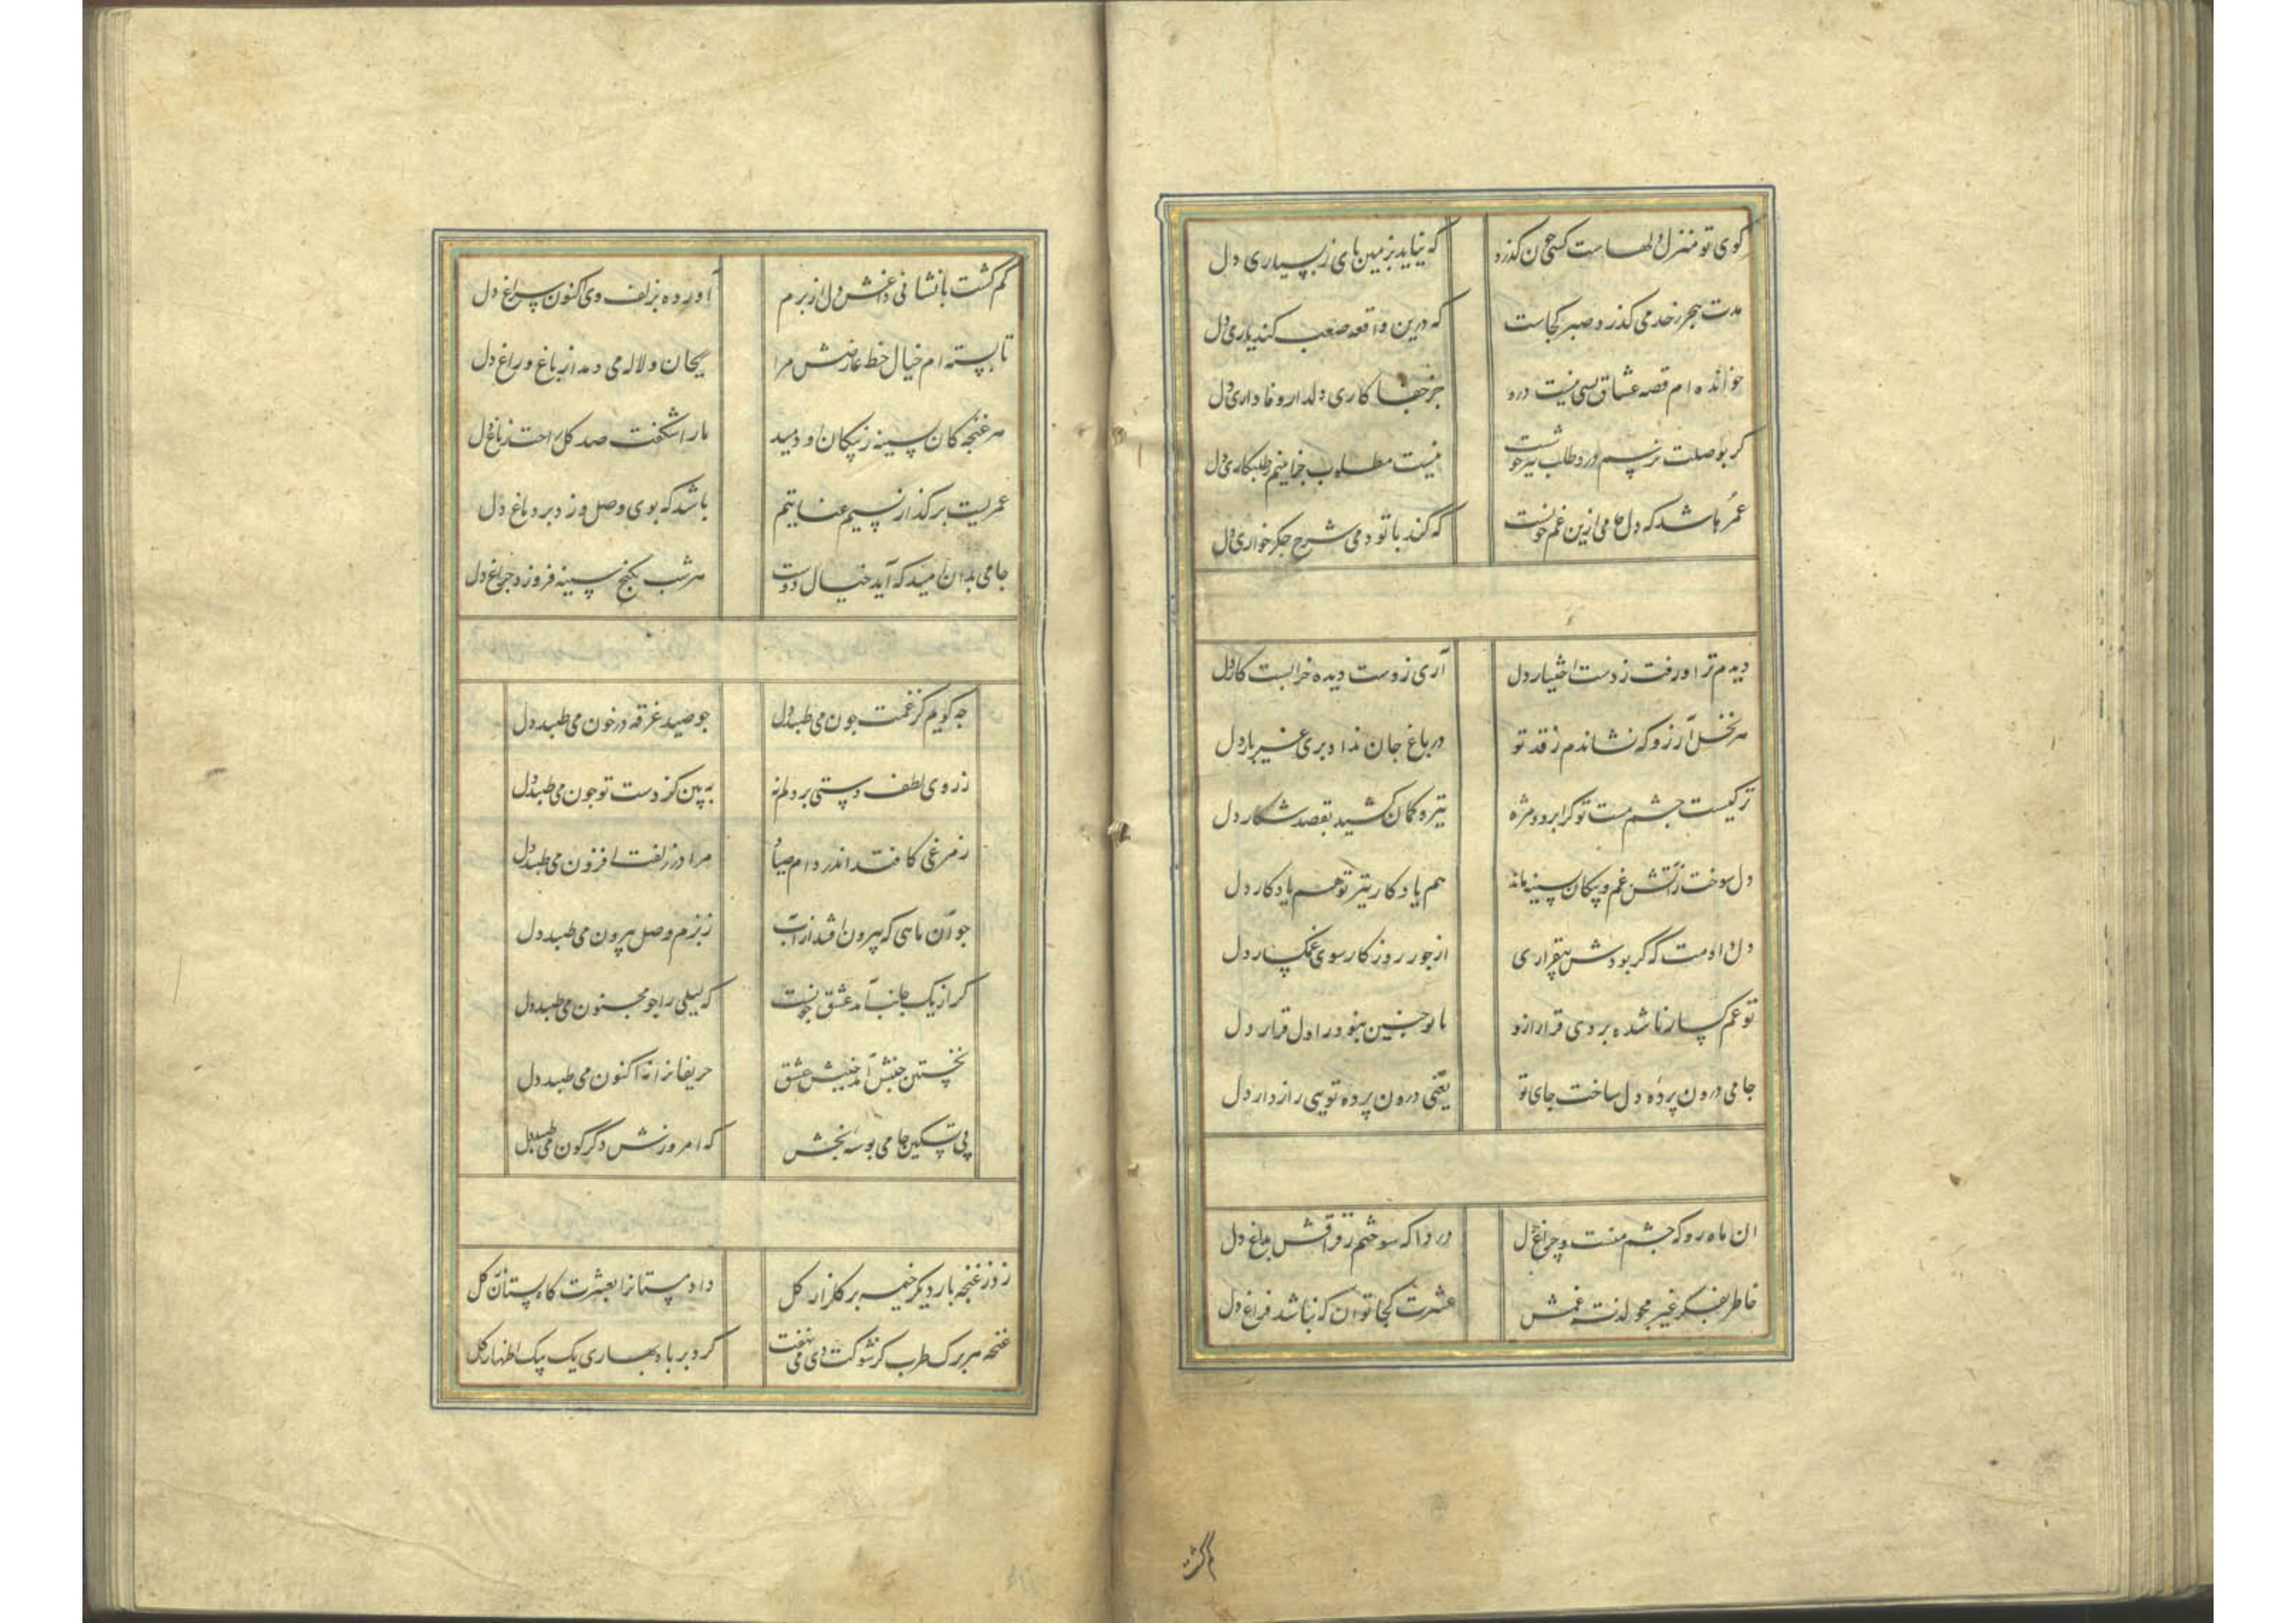 کوی تو منزل دلهاست کسی چون کذرد که نیاید بزمین پای ز بسیاری دل
مدت هجر رخت می کذرد صبر کجاست که درین واقعه صعب کند یاری دل
خوانده ام قصه عشاق بسی نیست درو جز جفا کاری دلدار و وفاداری دل
کر بوصلت نرسم درد طلب نیز خوشست نیست مطلوب جز اینم ز طلبکاری دل
عمرها شد که دل جامی ازین غم خونست که کند با تو دمی شرح جکر خواری دل
دیدم ترا و رفت ز دست اختیار دل آری ز دست دیده خرابست کار دل
هر نخل آرزو که نشاندم ز قد تو در باغ جان نداد بری غیر بار دل
ترکیست جشم مست تو کز ابرو و مژه تیر و کمان کشید بقصد شکار دل
دل سوخت ز آتش غم و پیکان بسینه ماند هم یادکار تیر تو هم یادکار دل
دل دادمت که کر بودش بیقراری از جور روزکار سوی غمکسار دل
تو غمکسار ناشده بردی قرار ازو با تو جنین نبود در اول قرار دل
جامی درون پرده دل ساخت جای تو یعنی درون پرده تویی رازدار دل
ان ماه رو که جشم منست و چراغ دل دردا که سوختم ز فراقش بداغ دل
خاطر بفکر غیر جو لذت غمش عشرت کجا توان که نباشد فراغ دل
کم کشت
کم کشت با نشانی داغش دل از برم آورده بزلف وی اکنون سراغ دل
تا بسته ام خیال خط عارضش مرا ریحان و لاله می دمد از باغ و راغ دل
هر غنجه کان بسینه ز پیکان او دمید ما را شکفت صد کل راحت ز باغ دل
عمریست بر کذار نسیم عنایتیم باشد که بوی وصل وزد بر دماغ دل
جامی بدان امید که آید خیال دوست هر شب بکنج سینه فروزد چراغ دل
جه کویم کز غمت جون می طبد دل جو صید غرقه در خون می طبد دل
ز روی لطف دستی بر دلم نه ببین کز دست تو جون می طبد دل
ز مرغی کافتد اندر دام صیاد مرا در زلفت افزون می طبد دل
جو آن ماهی که بیرون افتد از آب ز بزم وصل بیرون می طبد دل
کر از یک جانب آمد عشق جونست که لیلی را جو مجنون می طبد دل
نخستین جنبش آمد جنبش عشق حریفانرا نه اکنون می طبد دل
پی تسکین جامی بوسه بخش که امروزش دکرکون می طبد دل
زد ز غنجه بار دیکر خیمه بر کلزار کل داد مستانرا بعشرت کاه بستان کل
غنجه هر برک طرب کز شوکت دی می نهفت کرد بر باد بهاری یک بیک اظهار کل